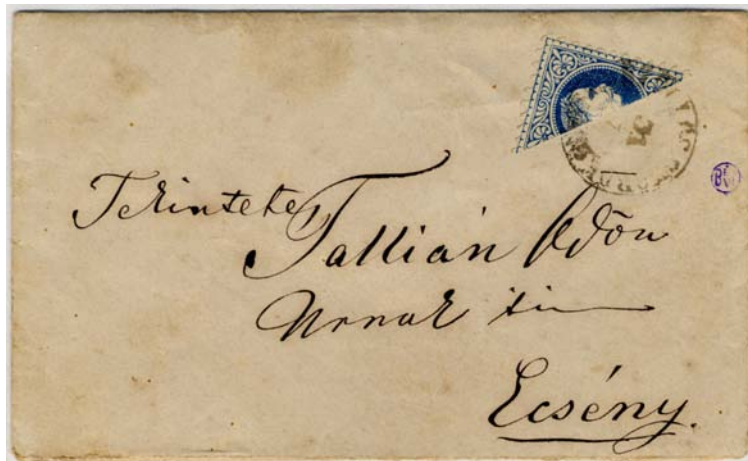 Tekintetes
Tallián Ödön
Urnak
Ecsény.